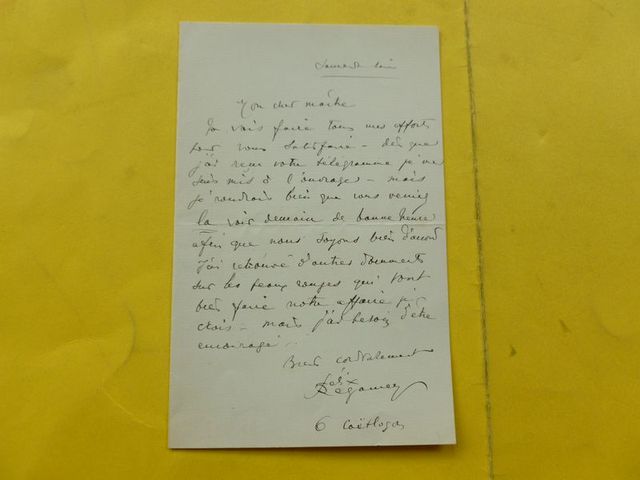 Samedi soir
Mon cher maître
Je vais faire tous mes efforts
pour vous satisfaire – dès que
j'ai reçu votre télégramme je me
suis mis à l'ouvrage – mais
je voudrais bien que vous veniez
la voir demain de bonne heure
afin que nous soyons bien d'accord
J'ai retrouvé d'autres documents
sur les peaux rouges qui vont
bien faire notre affaire je
crois – mais j'ai besoin d'être
encouragé..
Bien cordialement
Félix
Régamey
6 Coëtlogon